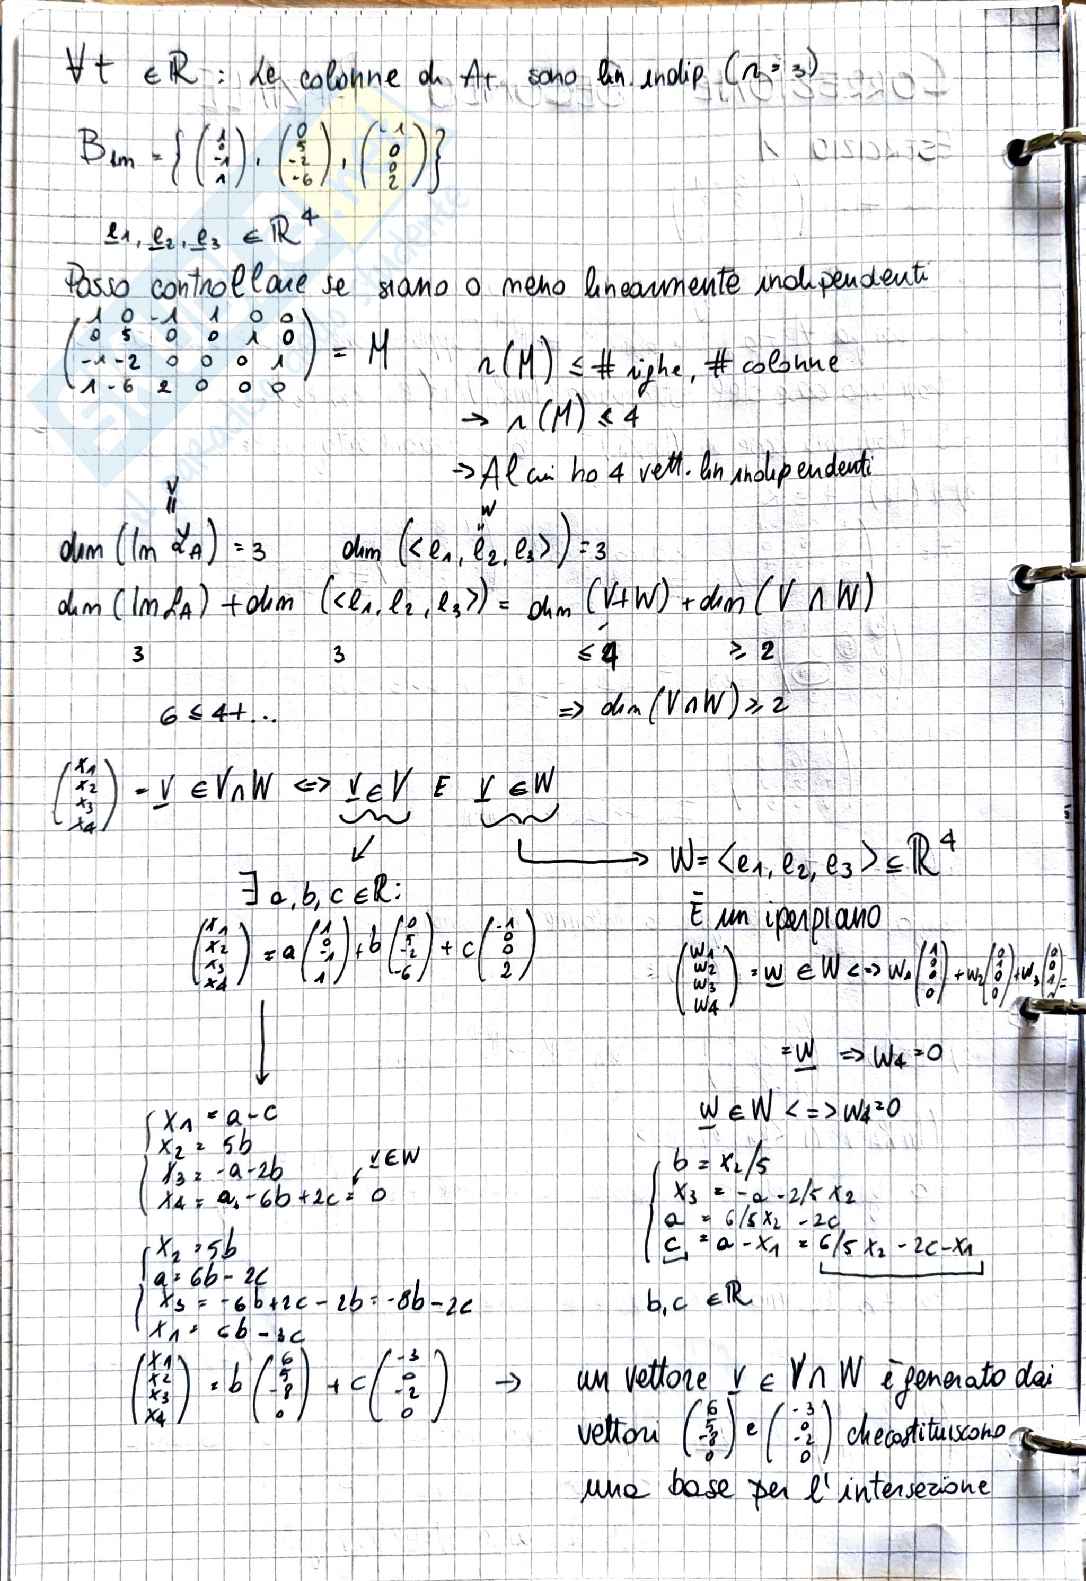 ∀t ∈ ℝ : Le colonne di At sono lin. indip (r = 3)
BIm = { (1 0 -1 1), (0 5 -2 -6), (-1 0 0 2) }
e1, e2, e3 ∈ ℝ^4
Posso controllare se siano o meno linearmente indipendenti
(1 0 -1 1 0 0
0 5 0 0 1 0
-1 -2 0 0 0 1
1 -6 2 0 0 0) = M
r(M) ≤ # righe, # colonne
→ r(M) ≤ 4
→ Al più ho 4 vett. lin indipendenti
V
=
W
=
dim (Im LA) = 3 dim (<e1, e2, e3>) = 3
dim (Im LA) + dim (<e1, e2, e3>) = dim (V+W) + dim (V ∩ W)
3 3 ≤ 4 ≥ 2
6 ≤ 4 + ... => dim (V∩W) ≥ 2
(x1 x2 x3 x4) = v ∈ V∩W <=> v ∈ V E v ∈ W
→ W = <e1, e2, e3> ⊆ ℝ^4
∃ a, b, c ∈ ℝ:
È un iperpiano
(x1 x2 x3 x4) = a (1 0 -1 1) + b (0 5 -2 -6) + c (-1 0 0 2)
(w1 w2 w3 w4) = w ∈ W <=> w1 (1 0 0 0) + w2 (0 1 0 0) + w3 (0 0 1 0) =
= w => w4 = 0
w ∈ W <=> w4 = 0
x1 = a - c
x2 = 5b
x3 = -a - 2b v ∈ W
x4 = a - 6b + 2c = 0
b = x2/5
x3 = -a - 2/5 x2
a = 6/5 x2 - 2c
c = a - x1 = 6/5 x2 - 2c - x1
b, c ∈ ℝ
x2 = 5b
a = 6b - 2c
x3 = -6b + 2c - 2b = -8b - 2c
x1 = 6b - 3c
(x1 x2 x3 x4) = b (6 5 -8 0) + c (-3 0 -2 0) →
un vettore v ∈ V ∩ W è generato dai
vettori (6 5 -8 0) e (-3 0 -2 0) che costituiscono
una base per l'intersezione